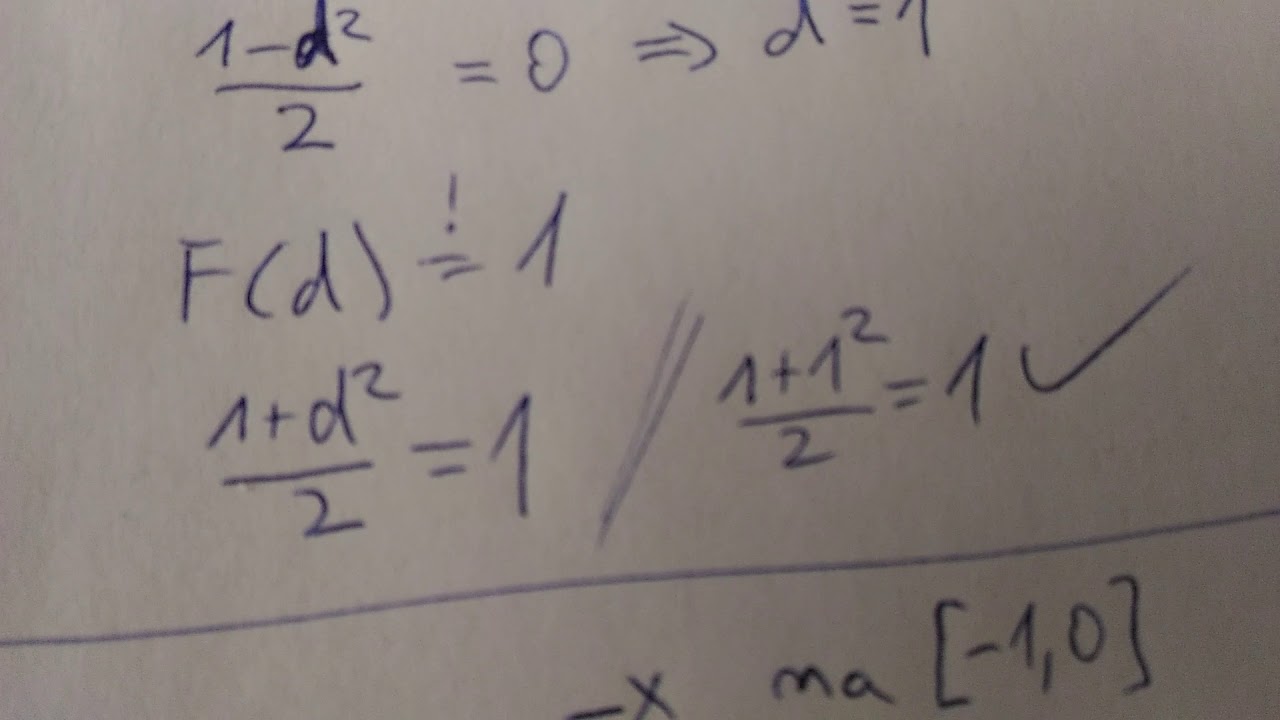 1-d²/2 = 0 ⇒ d = 1
F(d) =! 1
1+d²/2 = 1 // 1+1²/2 = 1 ✓
-x na [-1,0]